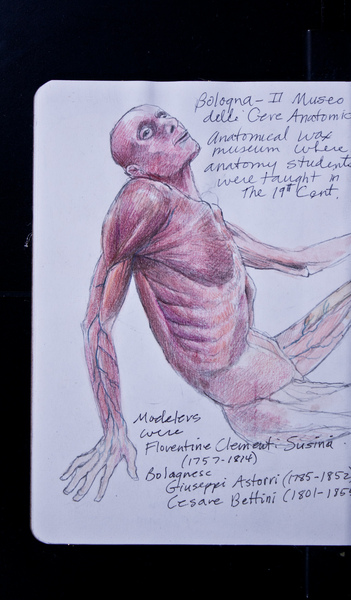 Bologna - Il Museo
delli Cere Anatomic
Anatomical wax
museum where
anatomy students
were taught in
The 19th Cent.
Modelers
were
Florentine Clementi Susina
(1757-1814)
Bolagnese
Giuseppi Astorri (1785-1852
Cesare Bettini (1801-185